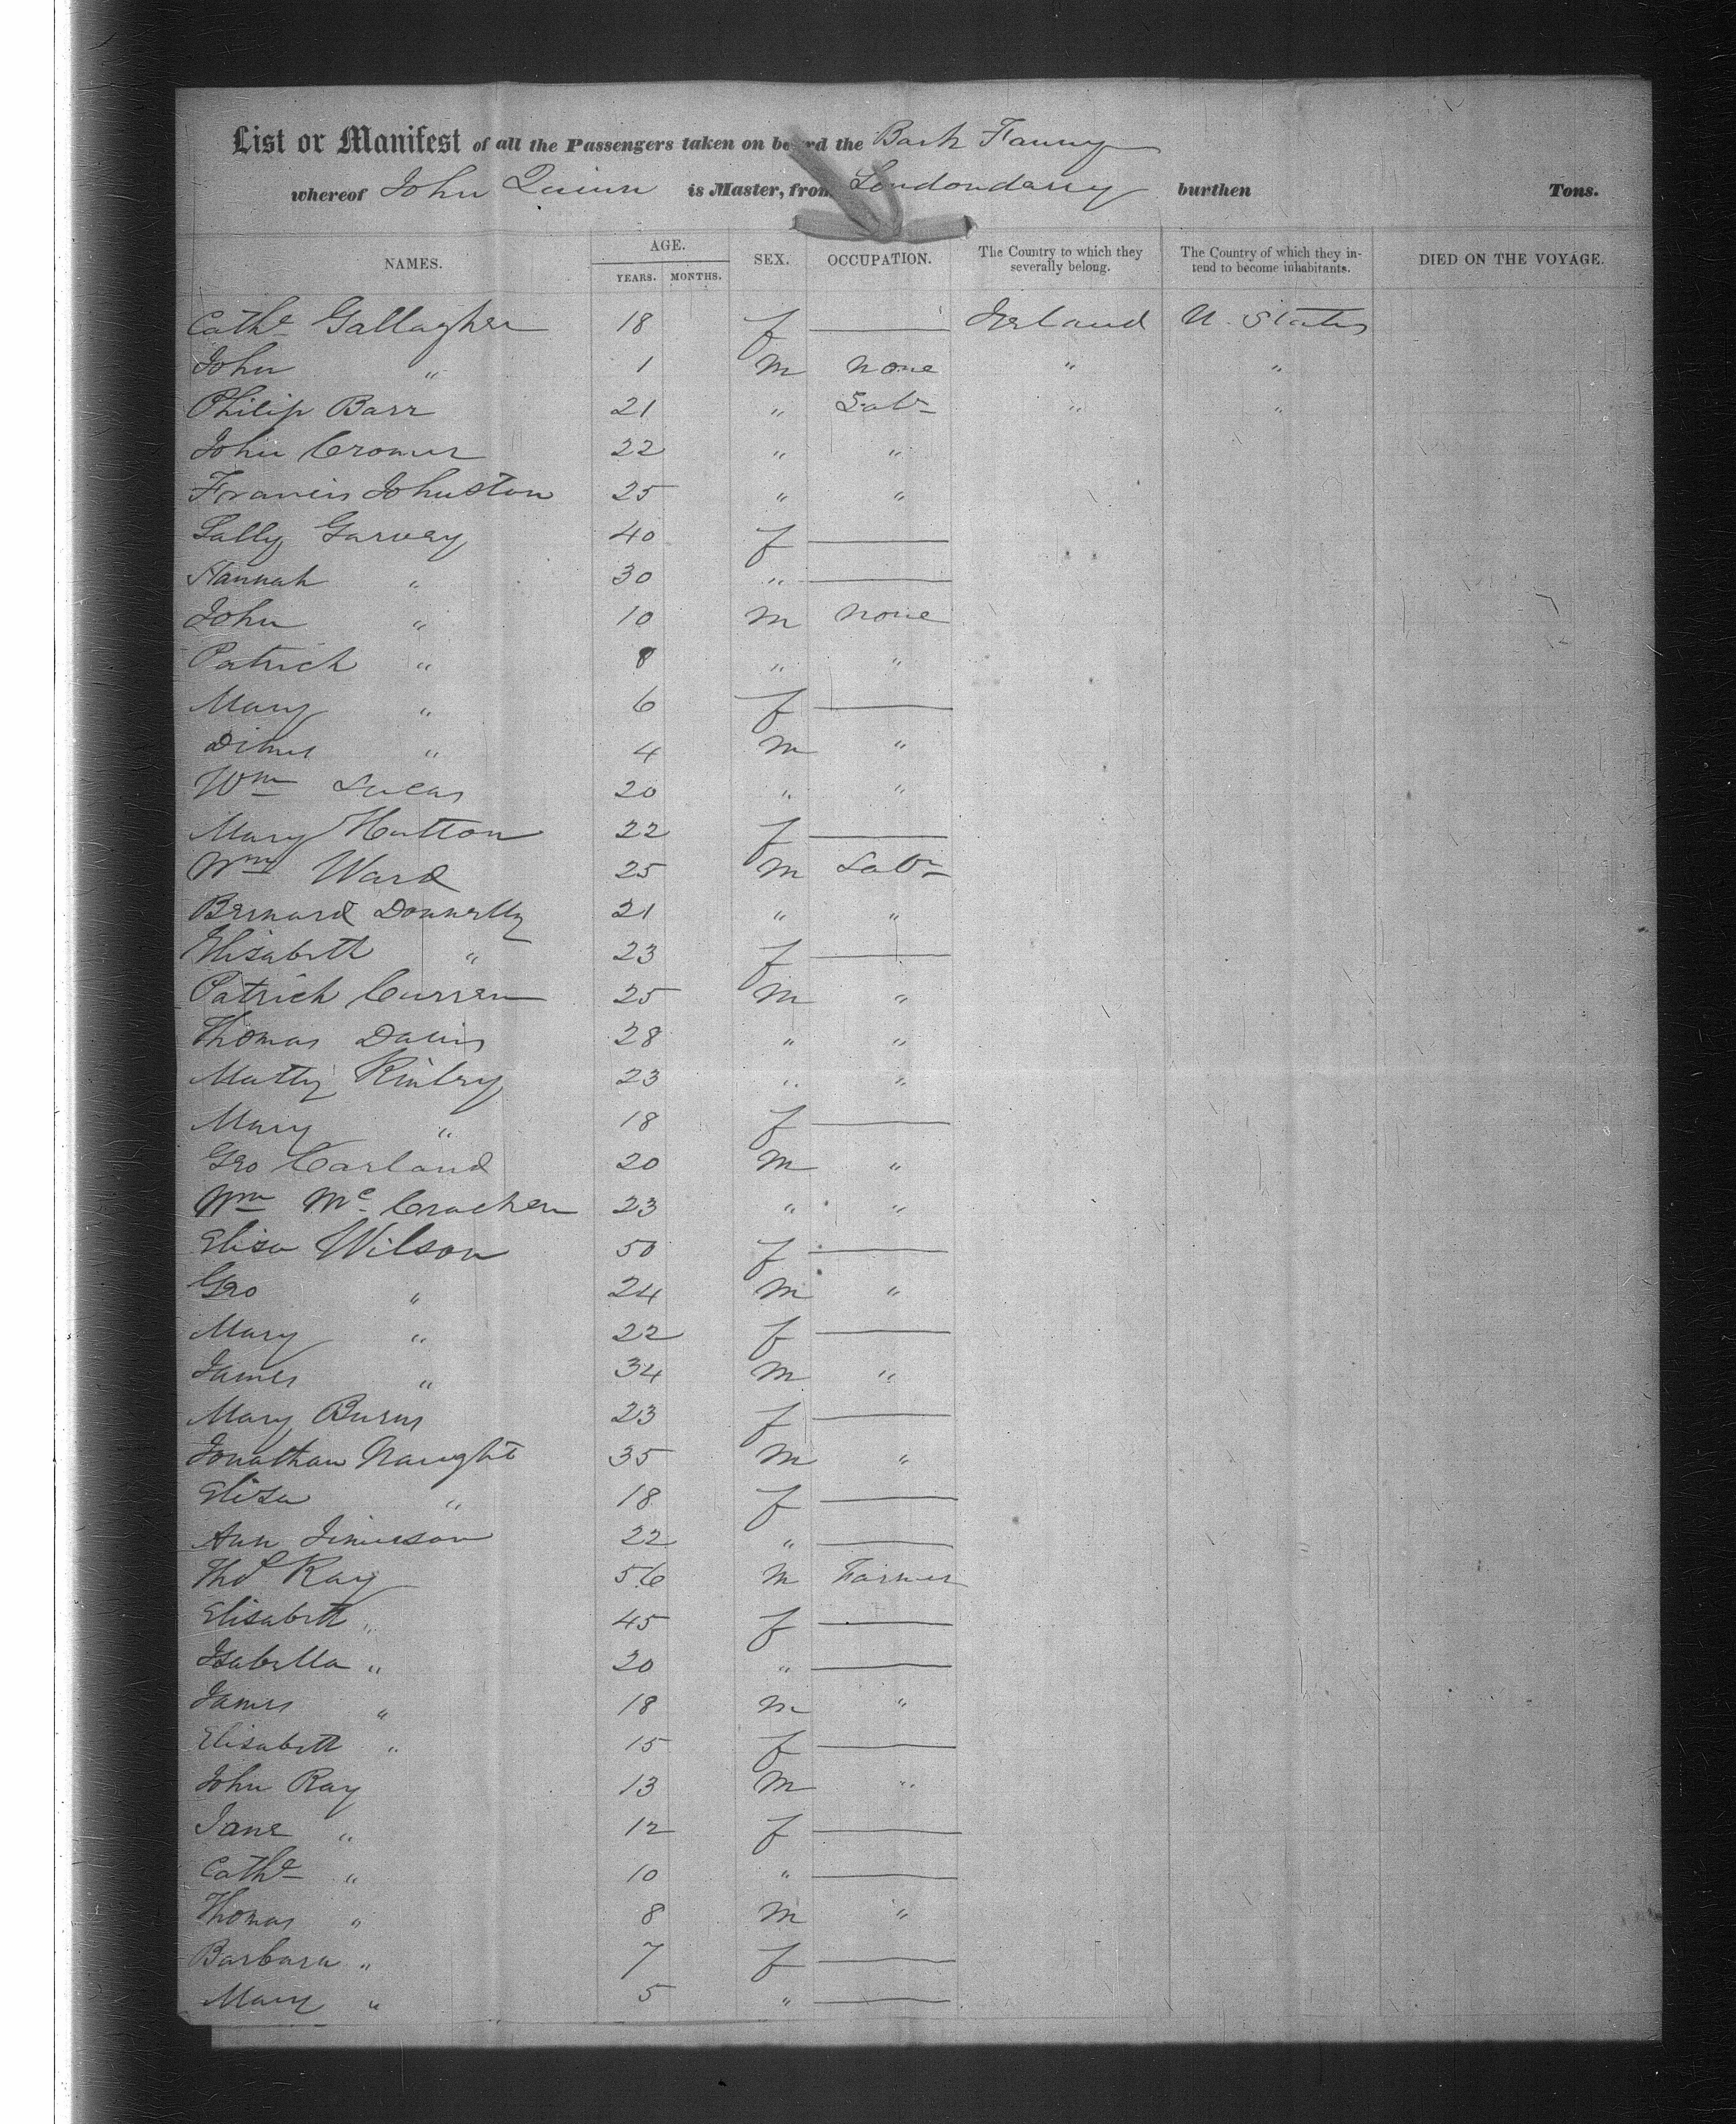 List or Manifest of all the Passengers taken on board the Bark Fanny
whereof John Quinn is Master, from Londonderry burthen Tons.
NAMES. AGE. YEARS. MONTHS. SEX. OCCUPATION. The Country to which they severally belong. The Country of which they intend to become inhabitants. DIED ON THE VOYAGE.
Cathe Gallagher 18 f — Ireland U. States
John " 1 m none " "
Philip Barr 21 " Labr " "
John Cromer 22 " "
Francis Johnston 25 " "
Sally Garvey 40 f —
Hannah " 30 " —
John " 10 m none
Patrick " 8 " "
Mary " 6 f —
" 4 m "
Wm Lucas 20 " "
Mary Hutton 22 f —
Wm Ward 25 m Labr
Bernard Donnelly 21 " "
Elisabeth " 23 f —
Patrick Curren 25 m "
Thomas Davis 28 " "
Matty 23 " "
Mary " 18 f —
Geo Carland 20 m "
Wm Mc Cracken 23 " "
Elisa Wilson 50 f —
Geo " 24 m "
Mary " 22 f —
James " 34 m "
Mary Burns 23 f —
Jonathan Naught 35 m "
Eliza " 18 f —
Ann Jimerson 22 " —
Thos Ray 56 m Farmer
Elisabeth " 45 f —
Isabella " 20 " —
James " 18 m "
Elisabeth " 15 f —
John Ray 13 m "
Jane " 12 f —
Cathe " 10 " —
Thomas " 8 m "
Barbara " 7 f —
Mary " 5 " —